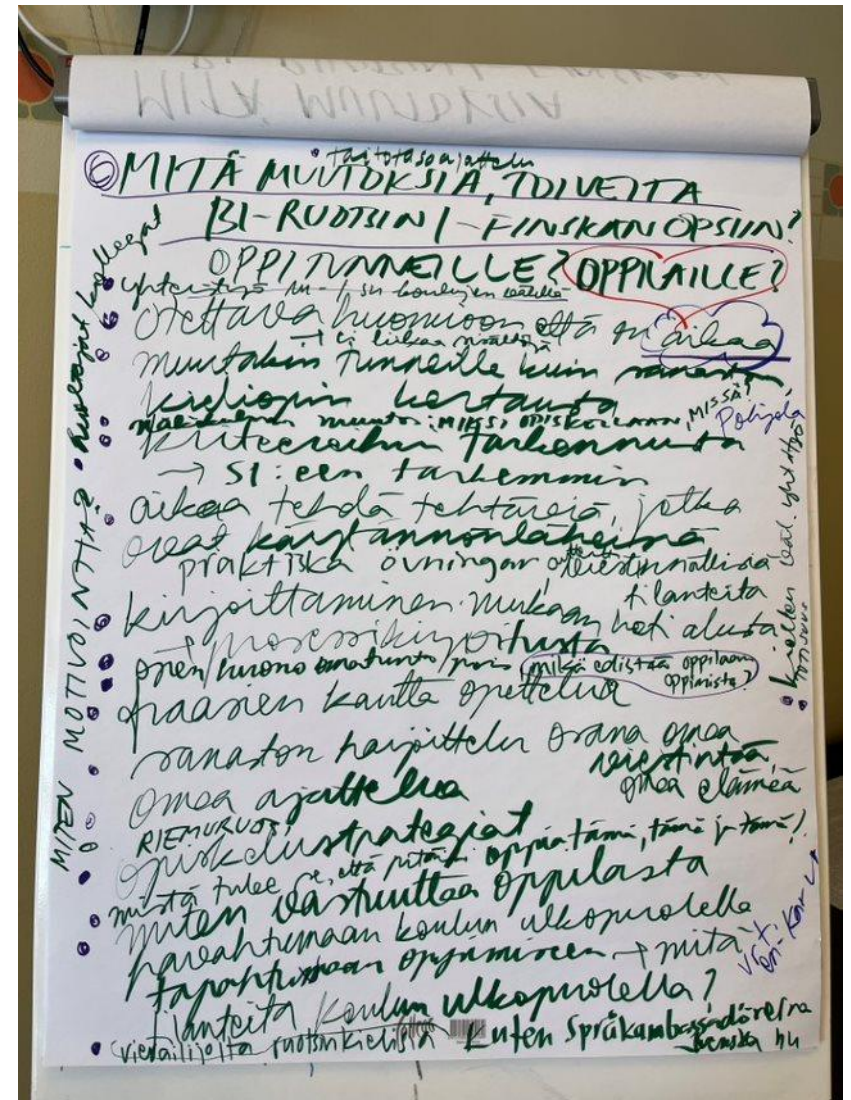 MITÄ MUUTOKSIA
⑥ MITÄ MUUTOKSIA, TOIVEITA
• taitotasoajattelu
B1-RUOTSIN / -FINSKAN OPSIIN?
OPPITUNNEILLE? OPPILAILLE?
yhteistyö su- / su koulujen välillä
otettava huomioon että on aikaa
→ ei liikaa sisältöjä
muutakin tunneille kuin sanaston,
kieliopin kertausta
näkökulman muutos: MIKSI OPISKELLAAN, MISSÄ?
Pohjola
kriteereihin tarkennusta
→ S1:een tarkemmin
aikaa tehdä tehtäviä, jotka
ovat käytännönläheisiä
praktiska övningar, viestinnällisiä
tilanteita
kirjoittaminen mukaan heti alusta
→ prosessikirjoitusta
open huono omatunto pois
mikä edistää oppilaan
oppimista?
fraasien kautta opettelua
sanaston harjoittelu osana omaa
viestintää,
omaa ajattelua
omaa elämää
RIEMURUOTSI
opiskelustrategiat
mistä tulee se, että pitäisi oppia tämä, tämä ja tämä!
miten vastuuttaa oppilasta
havahtumaan koulun ulkopuolella
tapahtuvaan oppimiseen → mitä
tilanteita koulun ulkopuolella?
• vierailijoita ruotsinkielisiä
kuten Språkambassadörerna
Svenska nu
MITEN MOTIVOINTIA?
kollegat
kielten väl. yhteistyö